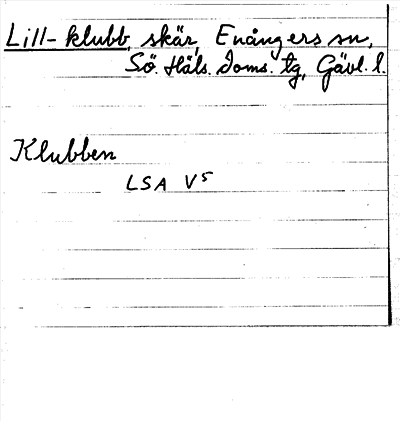 Lill-klubb, skär, Enångers sn,
Sö. Häls. Doms. tg, Gävl. l.
Klubben
LSA V5